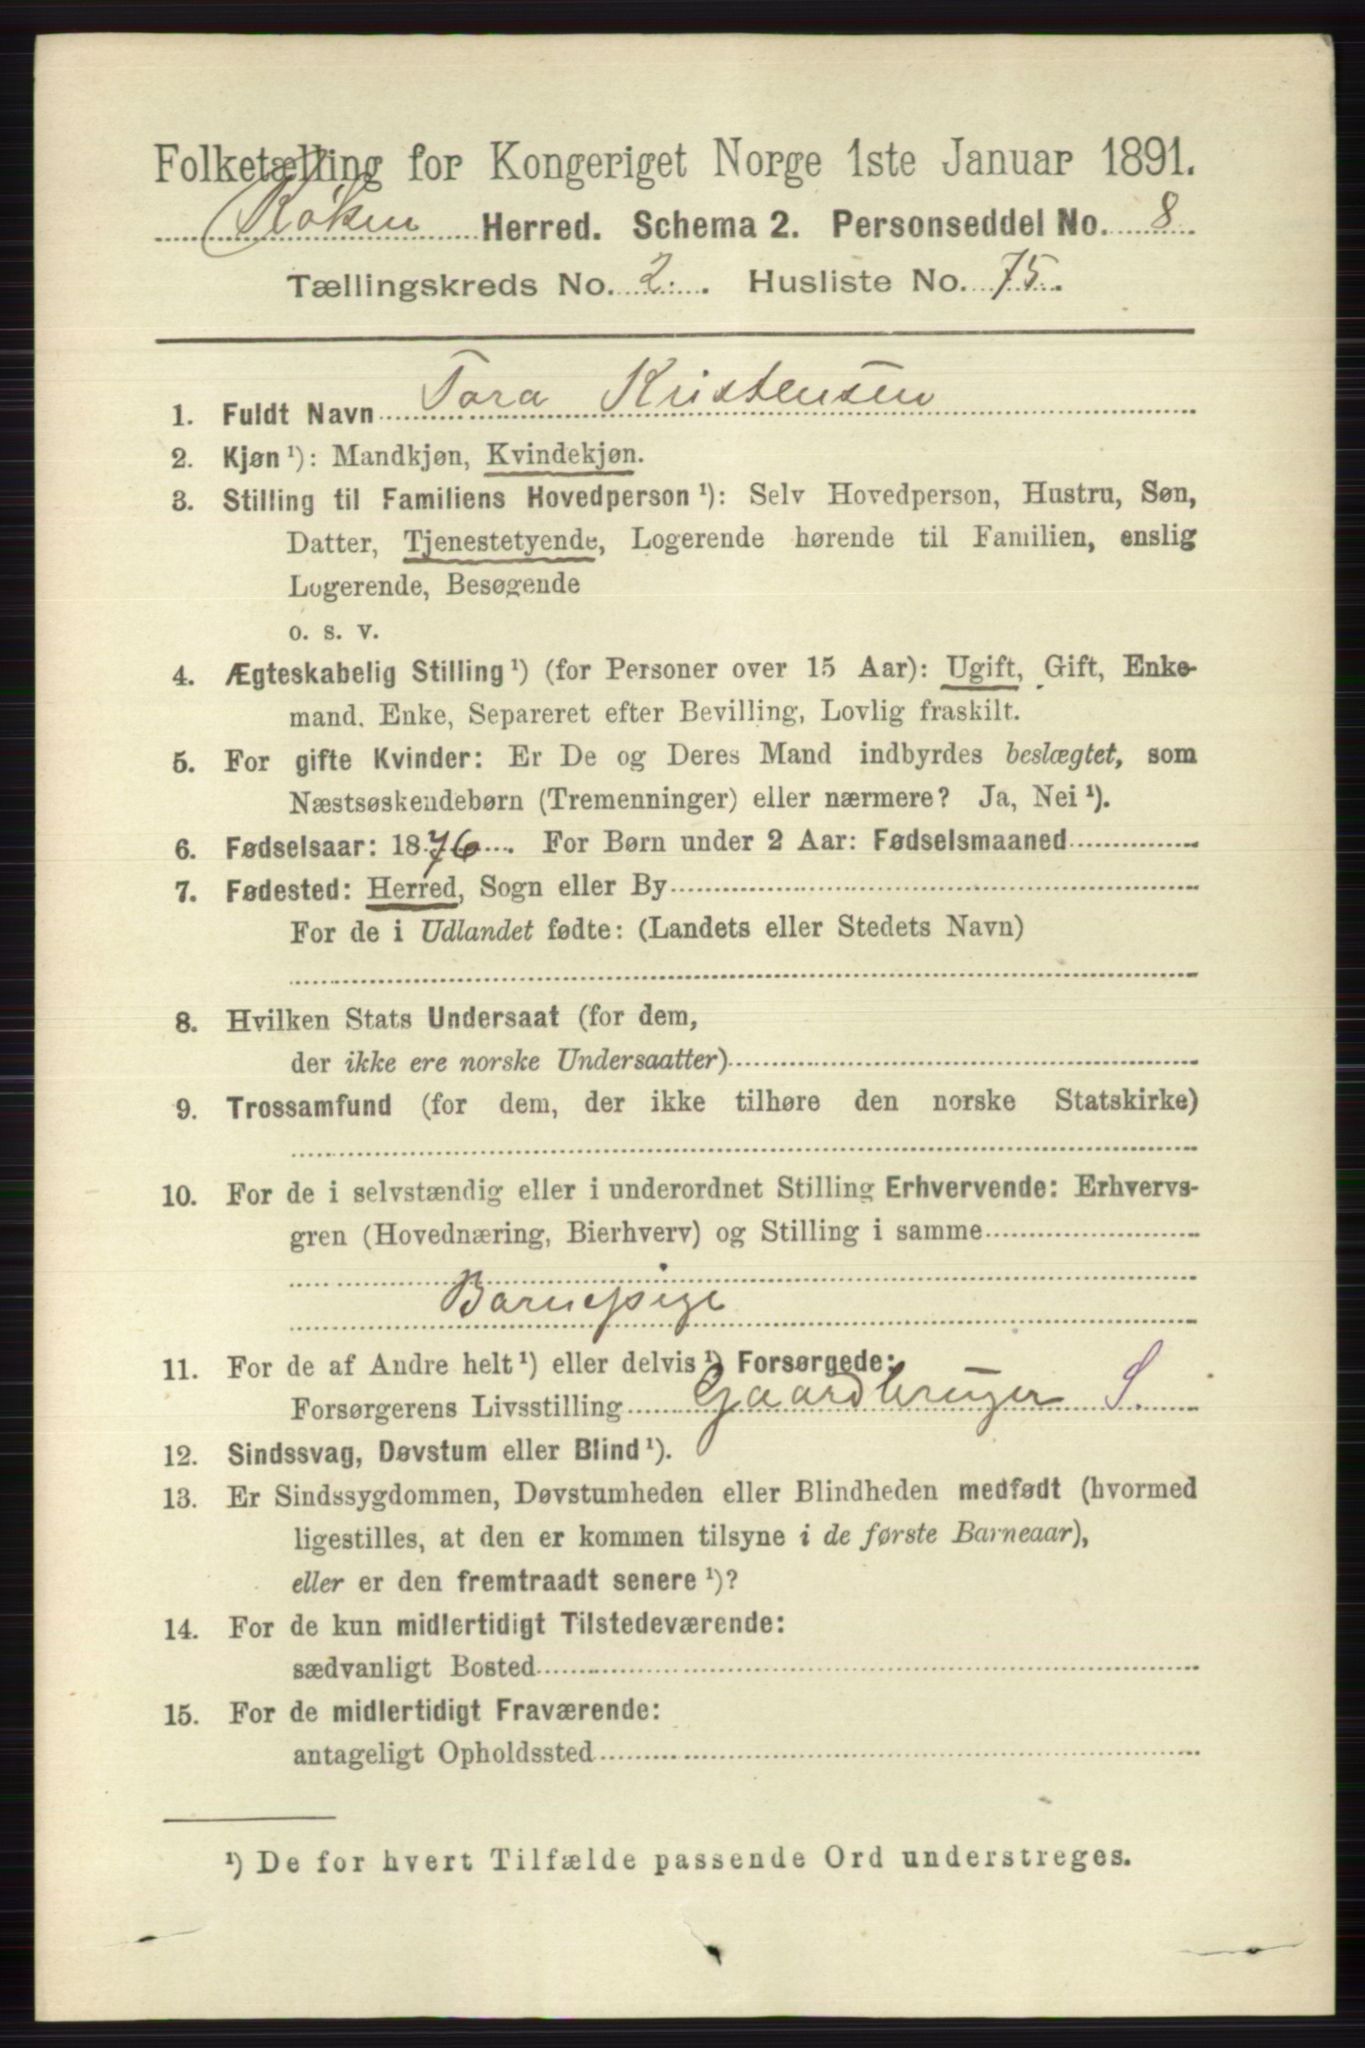 Folketælling for Kongeriget Norge 1ste Januar 1891.
Røken Herred. Schema 2. Personseddel No. 8
Tællingskreds No. 2. Husliste No. 75.
1. Fuldt Navn Tora Kristensen
2. Kjøn ¹): Mandkjøn, Kvindekjøn.
3. Stilling til Familiens Hovedperson ¹): Selv Hovedperson, Hustru, Søn,
Datter, Tjenestetyende, Logerende hørende til Familien, enslig
Logerende, Besøgende
o. s. v.
4. Ægteskabelig Stilling ¹) (for Personer over 15 Aar): Ugift, Gift, Enke-
mand, Enke, Separeret efter Bevilling, Lovlig fraskilt.
5. For gifte Kvinder: Er De og Deres Mand indbyrdes beslægtet, som
Næstsøskendebørn (Tremenninger) eller nærmere? Ja, Nei ¹).
6. Fødselsaar: 1876. For Børn under 2 Aar: Fødselsmaaned
7. Fødested: Herred, Sogn eller By
For de i Udlandet fødte: (Landets eller Stedets Navn)
8. Hvilken Stats Undersaat (for dem,
der ikke ere norske Undersaatter)
9. Trossamfund (for dem, der ikke tilhøre den norske Statskirke)
10. For de i selvstændig eller i underordnet Stilling Erhvervende: Erhvervs-
gren (Hovednæring, Bierhverv) og Stilling i samme
Barnepige
11. For de af Andre helt ¹) eller delvis ¹) Forsørgede:
Forsørgerens Livsstilling Gaardbruger S.
12. Sindssvag, Døvstum eller Blind ¹).
13. Er Sindssygdommen, Døvstumheden eller Blindheden medfødt (hvormed
ligestilles, at den er kommen tilsyne i de første Barneaar),
eller er den fremtraadt senere ¹)?
14. For de kun midlertidigt Tilstedeværende:
sædvanligt Bosted
15. For de midlertidigt Fraværende:
antageligt Opholdssted
¹) De for hvert Tilfælde passende Ord understreges.